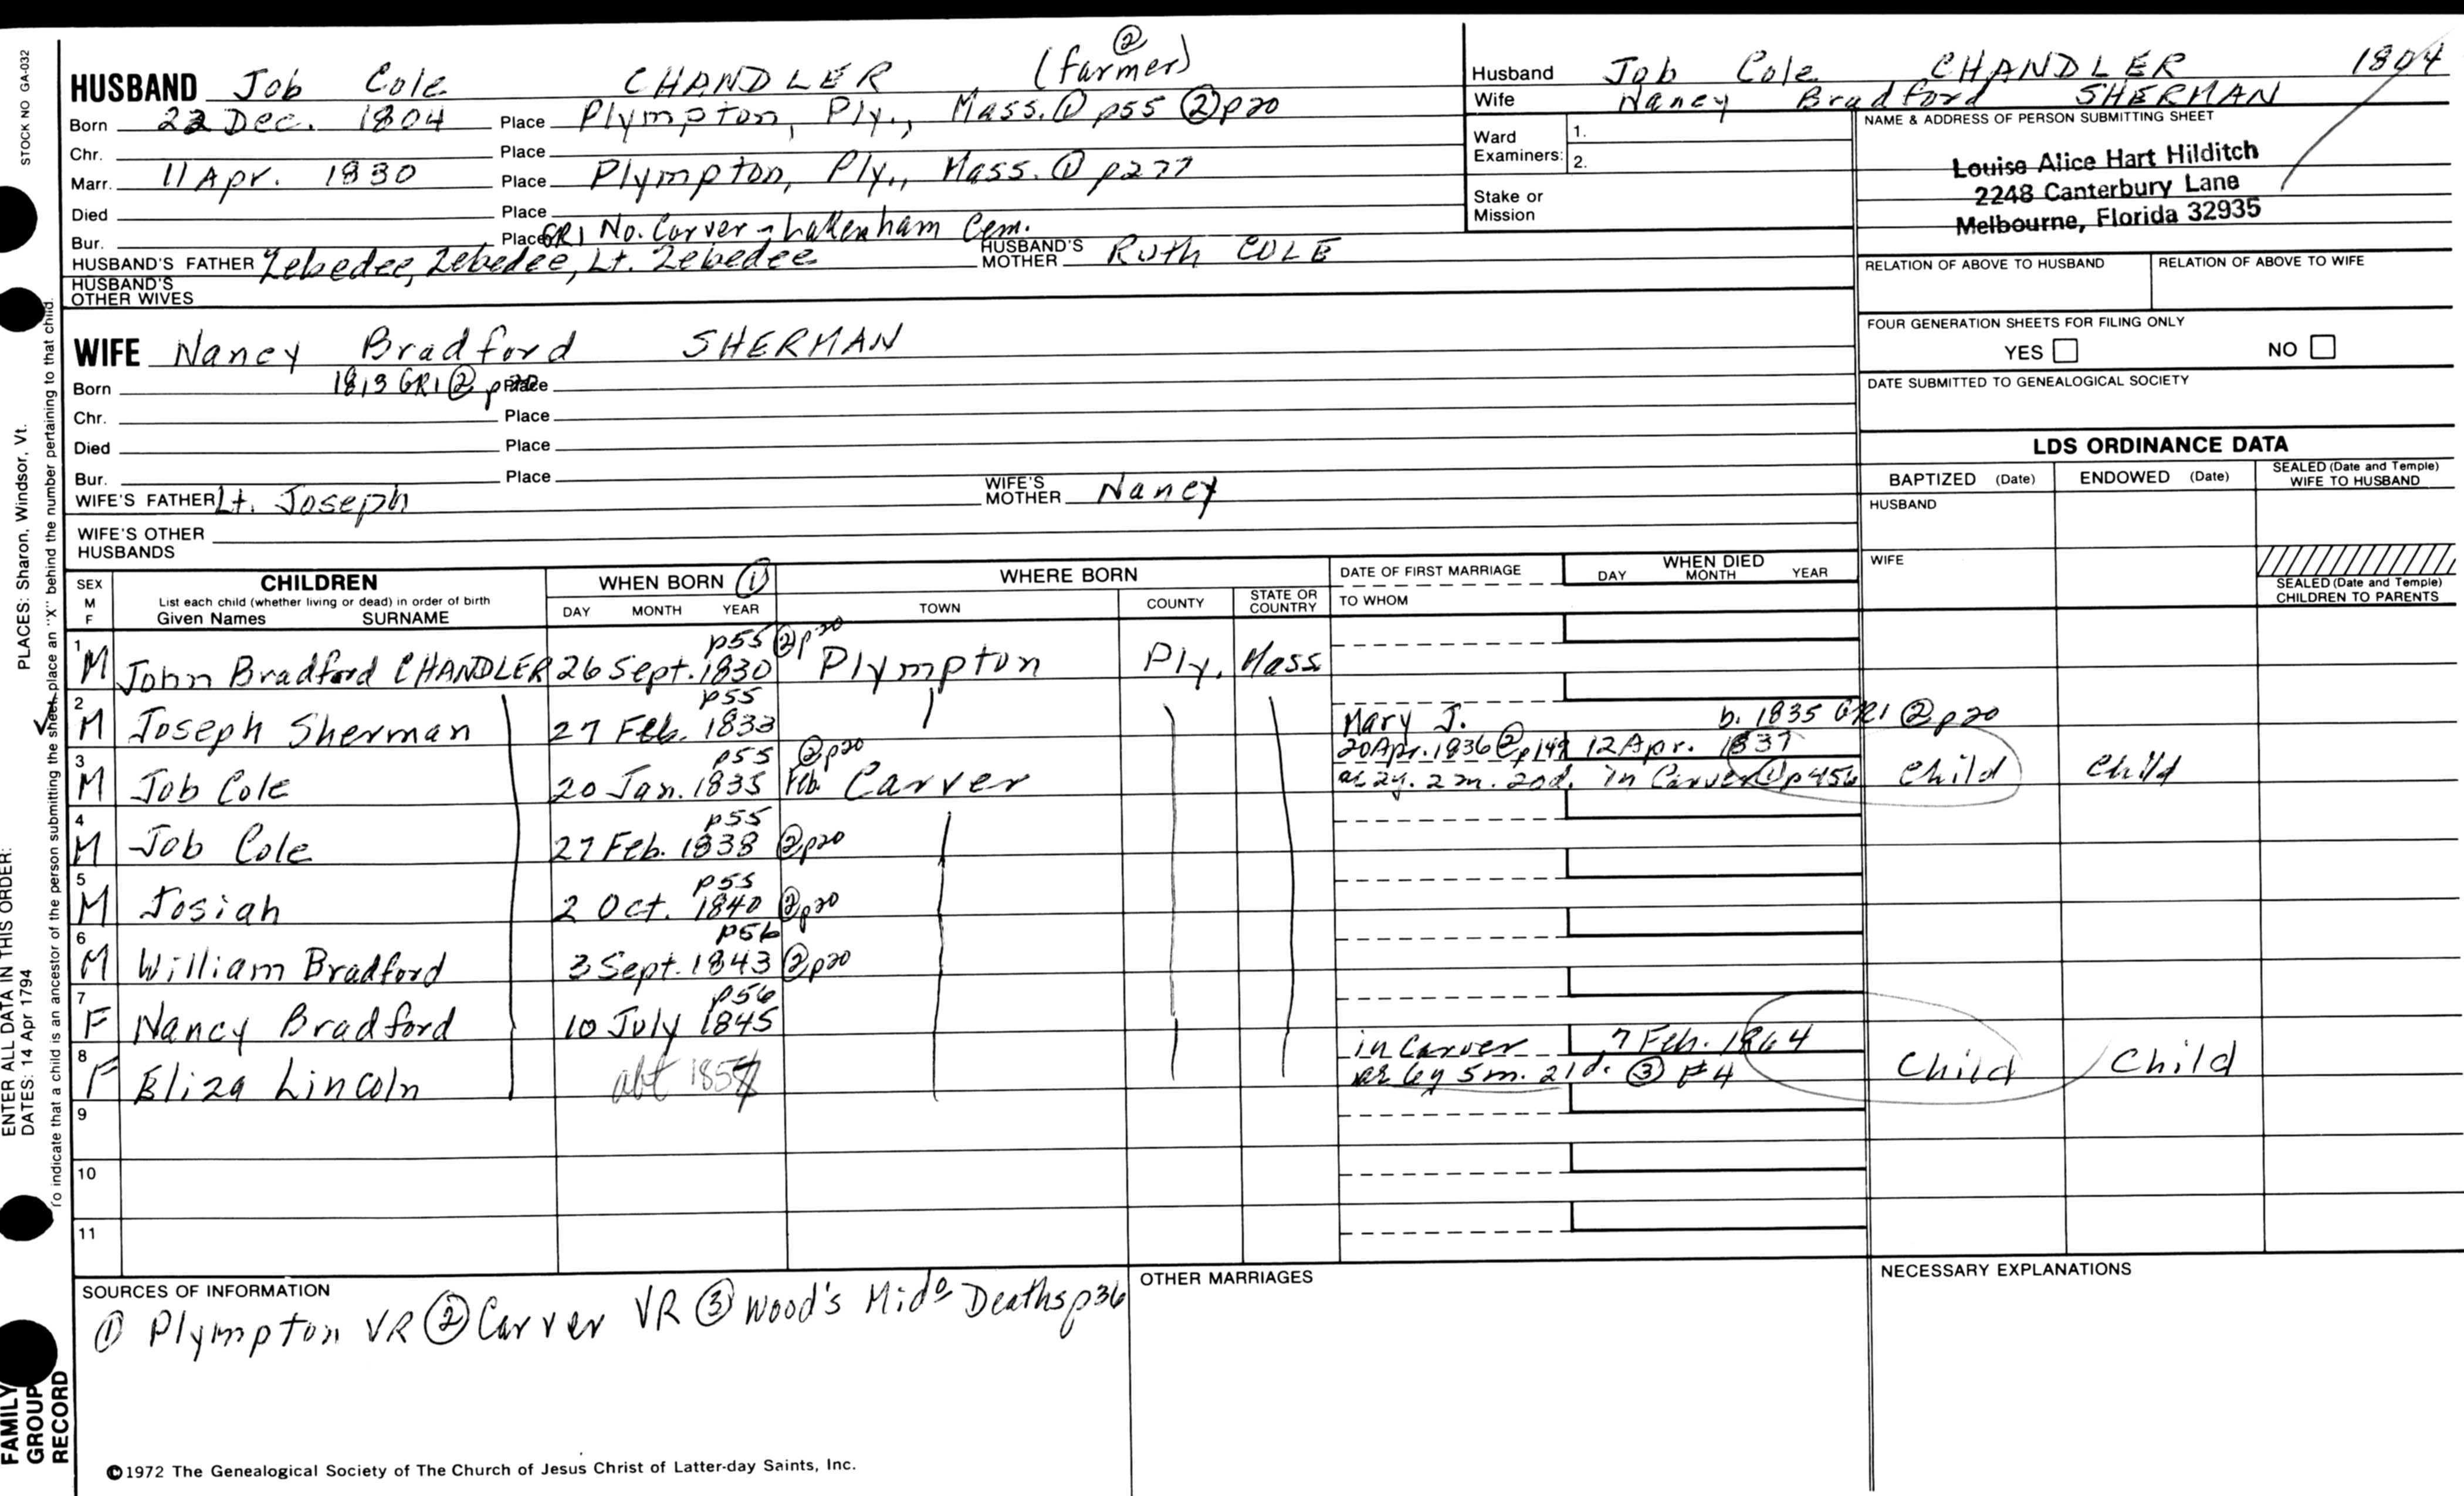 STOCK NO GA-032
HUSBAND Job Cole CHANDLER (farmer) ②
Born 22 Dec. 1804 Place Plympton, Ply., Mass. ① p55 ② p20
Chr. Place
Marr. 11 Apr. 1830 Place Plympton, Ply., Mass. ① p277
Died Place
Bur. Place GR1 No. Carver - Lakenham Cem.
HUSBAND'S FATHER Zebedee, Zebedee, Lt. Zebedee HUSBAND'S MOTHER Ruth COLE
HUSBAND'S OTHER WIVES
WIFE Nancy Bradford SHERMAN
Born 1813 GR1 ② p20 Place
Chr. Place
Died Place
Bur. Place
WIFE'S FATHER Lt. Joseph WIFE'S MOTHER Nancy
WIFE'S OTHER HUSBANDS
Husband Job Cole CHANDLER 1804
Wife Nancy Bradford SHERMAN
Ward Examiners: 1.
2.
Stake or Mission
NAME & ADDRESS OF PERSON SUBMITTING SHEET
Louise Alice Hart Hilditch
2248 Canterbury Lane
Melbourne, Florida 32935
RELATION OF ABOVE TO HUSBAND RELATION OF ABOVE TO WIFE
FOUR GENERATION SHEETS FOR FILING ONLY
YES NO
DATE SUBMITTED TO GENEALOGICAL SOCIETY
LDS ORDINANCE DATA
BAPTIZED (Date) ENDOWED (Date) SEALED (Date and Temple) WIFE TO HUSBAND
HUSBAND
WIFE
SEALED (Date and Temple) CHILDREN TO PARENTS
SEX M F CHILDREN WHEN BORN ① WHERE BORN DATE OF FIRST MARRIAGE WHEN DIED
List each child (whether living or dead) in order of birth
Given Names SURNAME DAY MONTH YEAR TOWN COUNTY STATE OR COUNTRY TO WHOM DAY MONTH YEAR
p55 ② p20
1 M John Bradford CHANDLER 26 Sept. 1830 Plympton Ply. Mass
p55
2 M Joseph Sherman 27 Feb. 1833 Mary J. b. 1835 GR1 ② p20
p55 ② p20 20 Apr. 1836 ② p149 12 Apr. 1837
3 M Job Cole 20 Jan. 1835 Feb. Carver ae 2y. 2m. 20d. in Carver ① p456 Child Child
p55
4 M Job Cole 27 Feb. 1838 ② p20
p55
5 M Josiah 2 Oct. 1840 ② p20
p56
6 M William Bradford 3 Sept. 1843 ② p20
p56
7 F Nancy Bradford 10 July 1845
in Carver 7 Feb. 1864
8 F Eliza Lincoln abt 1857 ae 6y 5m. 21d. ③ #4 Child Child
9
10
11
SOURCES OF INFORMATION
① Plympton VR ② Carver VR ③ Wood's Mido Deaths p36
OTHER MARRIAGES
NECESSARY EXPLANATIONS
©1972 The Genealogical Society of The Church of Jesus Christ of Latter-day Saints, Inc.
FAMILY GROUP RECORD
ENTER ALL DATA IN THIS ORDER:
DATES: 14 Apr 1794
PLACES: Sharon, Windsor, Vt.
To indicate that a child is an ancestor of the person submitting the sheet, place an "X" behind the number pertaining to that child.